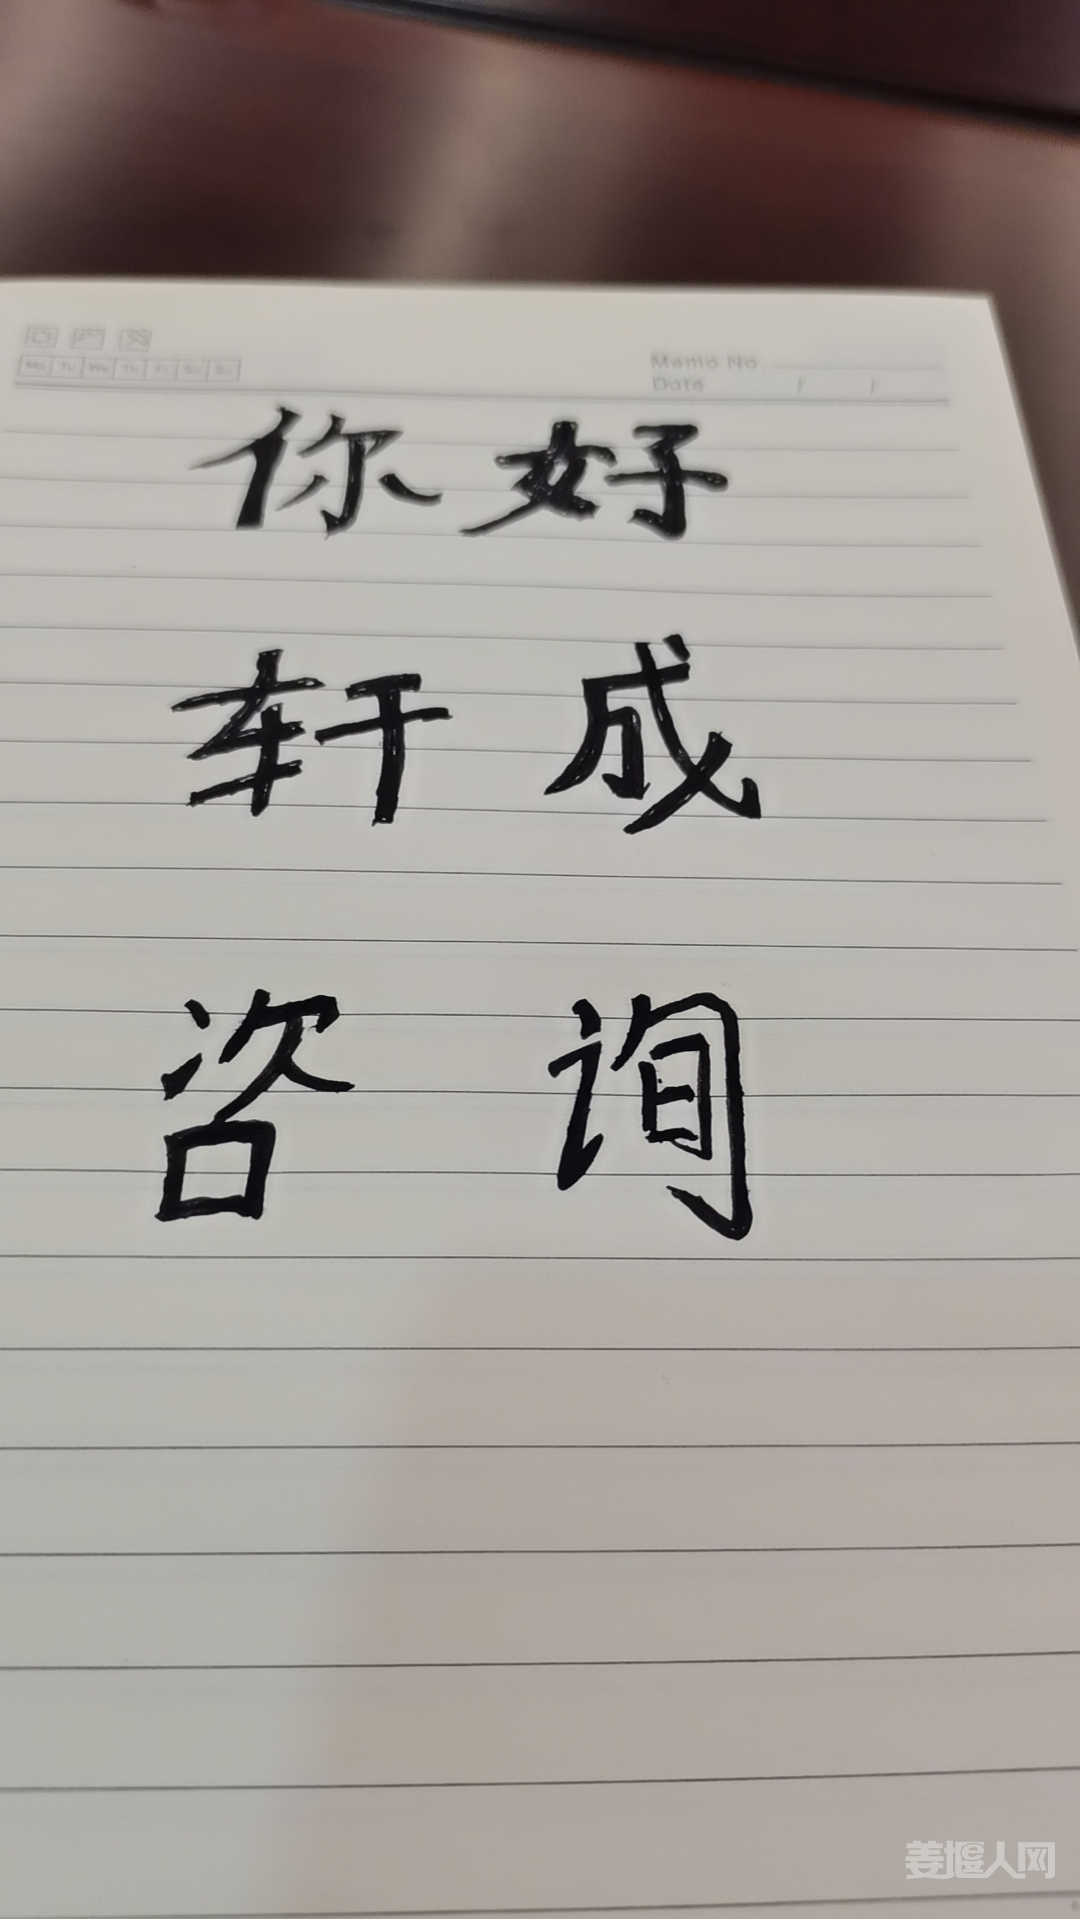 Mo Tu We Th Fr Sa Su
Memo No.
Date / /
你好
轩成
咨询
姜堰人网